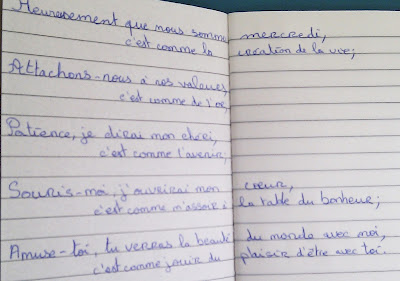 Heureusement que nous somme mercredi,
c'est comme la de la vie;
Attachons-nous à nos valeurs,
c'est comme de l'or,
Patience, je dirai mon chéri,
c'est comme l'avenir;
Souris-moi, j'ouvrirai mon cœur,
c'est comme m'assoir à la table du bonheur;
Amuse-toi, tu verras la beauté du monde avec moi,
c'est comme jouir du plaisir d'être avec toi.